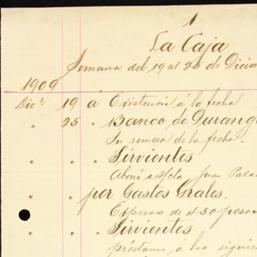 1
La Caja
Semana del 19 al 25 de Dicie
1909
Dic. 19 á Existencia á la fecha
" 25 " Banco de Durang
Su remesa de la fecha.
" " " Sirvientes
Abonó
" " por Gastos Grales.
Expreso de 450 pesos
" " " Sirvientes
préstamo á los siguie